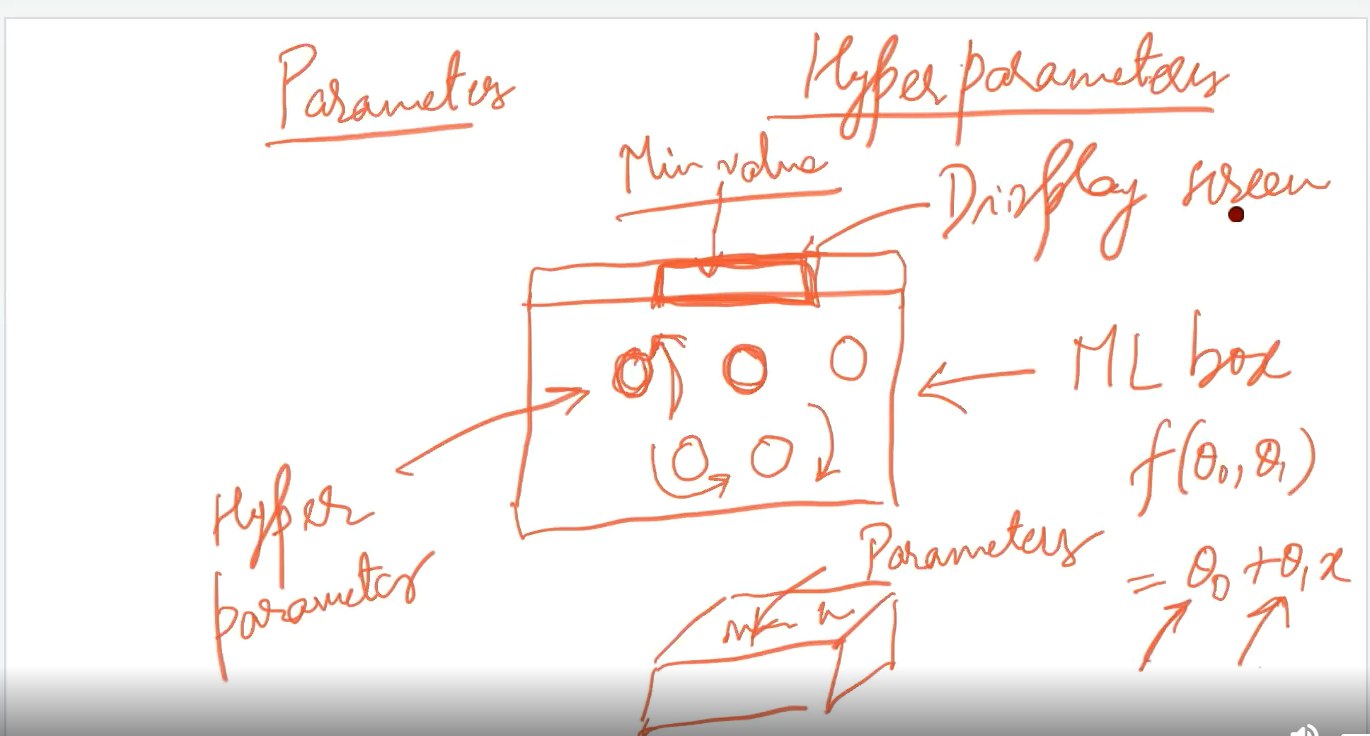 Parameters
Hyper parameters
Min value
Display screen
ML box
f(θ₀, θ₁)
= θ₀ + θ₁x
Hyper
parameter
Parameters